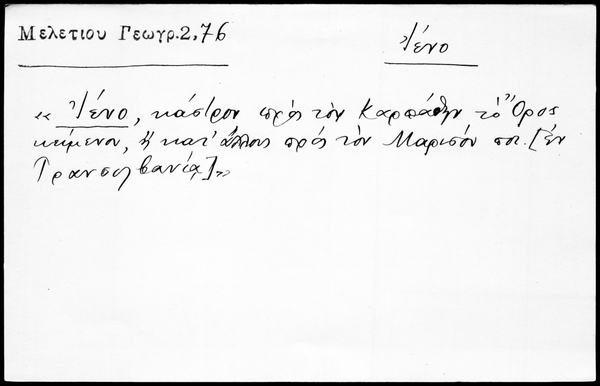 Μελετίου Γεωγρ. 2, 76
Ἰένο
« Ἰένο, κάστρον πρὸς τὸν Καρπάθην τὸ Ὄρος
κείμενον, ἢ κατ' ἄλλους πρὸς τὸν Μαρισόν ποτ. [ἐν
Τρανσυλβανίᾳ]»